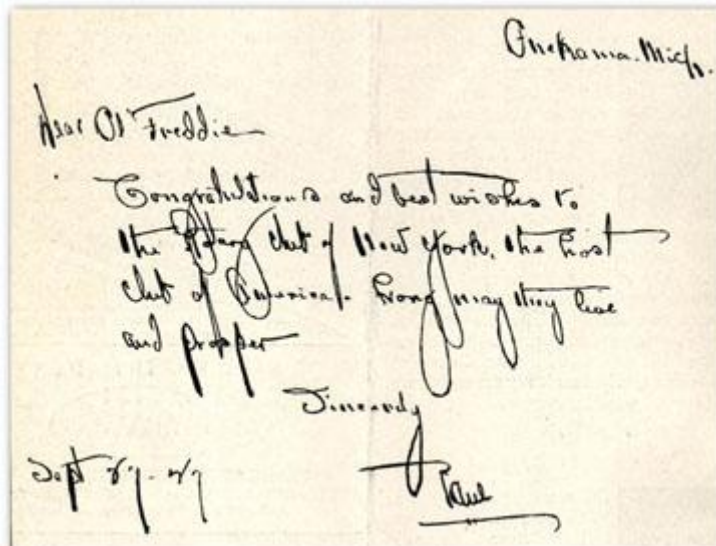 Onekama. Mich.
Dear Ol Freddie
Congratulations and best wishes to
the Rotary Club of New York, the host
club of America. Long may they live
and prosper
Sincerely
Paul
Sept 27 - 27